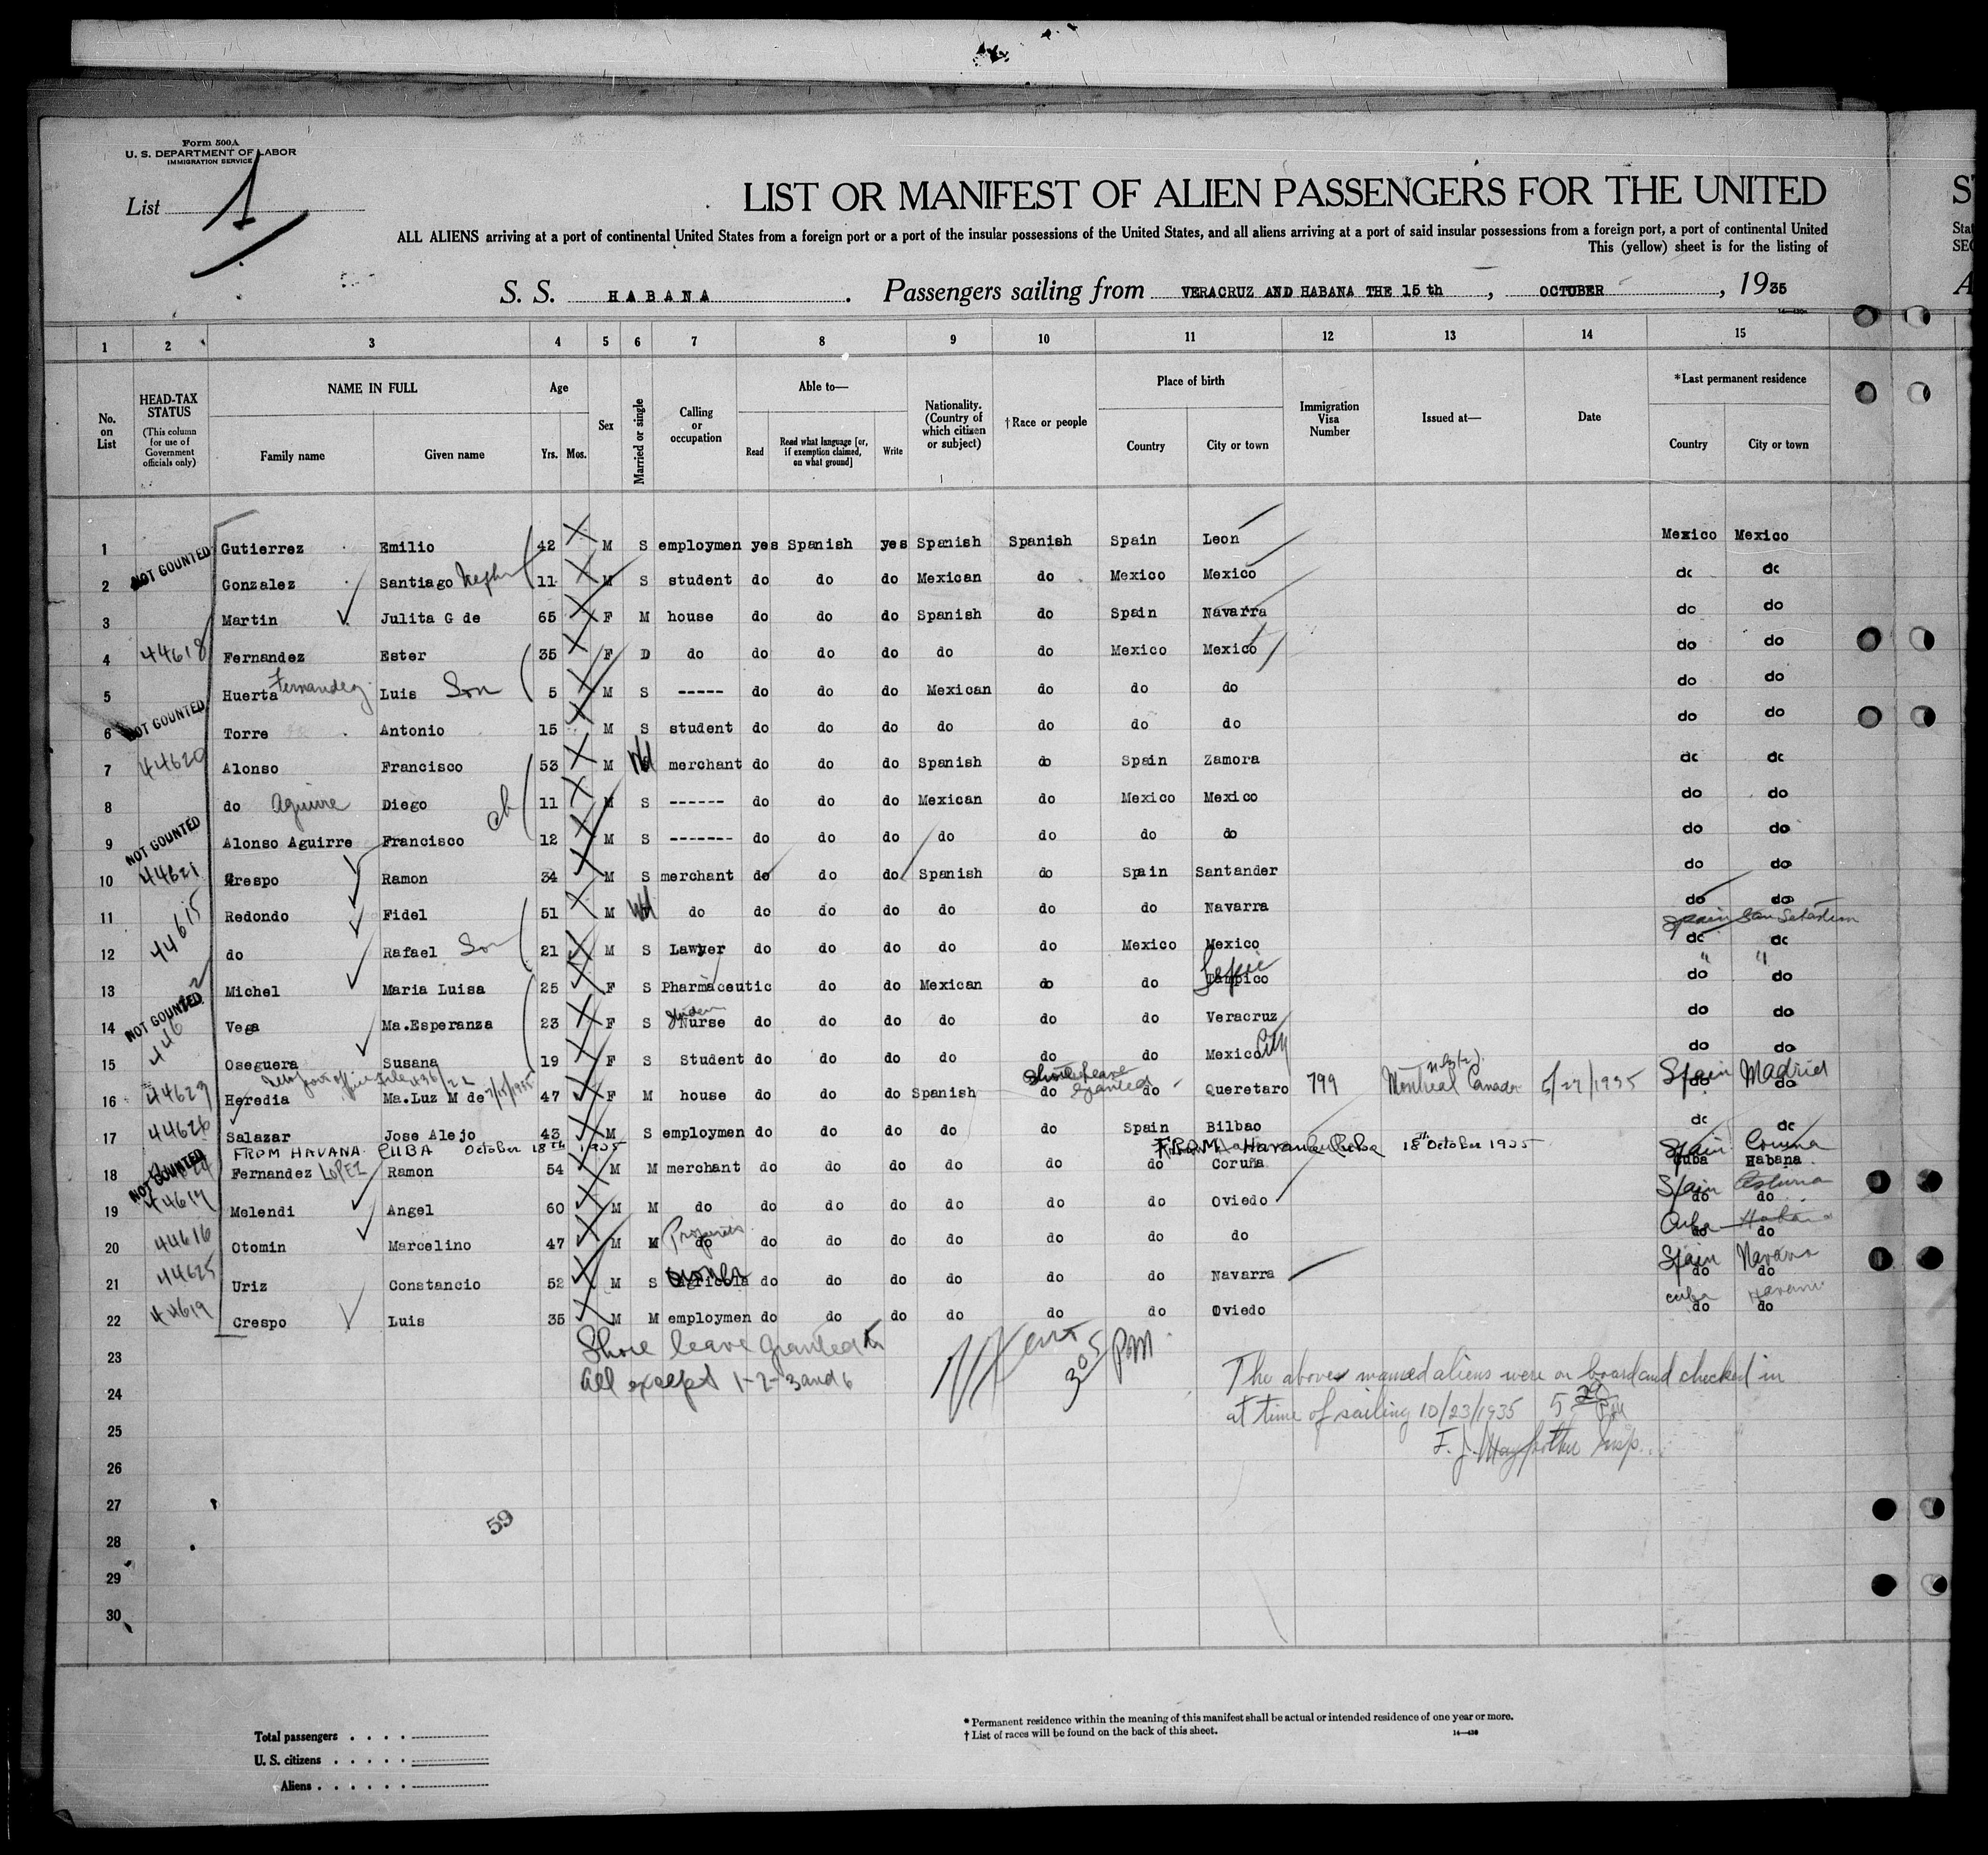 Form 500A
U. S. DEPARTMENT OF LABOR
IMMIGRATION SERVICE
List 1
LIST OR MANIFEST OF ALIEN PASSENGERS FOR THE UNITED
ALL ALIENS arriving at a port of continental United States from a foreign port or a port of the insular possessions of the United States, and all aliens arriving at a port of said insular possessions from a foreign port, a port of continental United
This (yellow) sheet is for the listing of
S. S. HABANA . Passengers sailing from VERACRUZ AND HABANA THE 15th , OCTOBER , 1935
1 2 3 4 5 6 7 8 9 10 11 12 13 14 15
No. on List
HEAD-TAX STATUS (This column for use of Government officials only)
NAME IN FULL Family name Given name
Age Yrs. Mos.
Sex
Married or single
Calling or occupation
Able to— Read Read what language [or, if exemption claimed, on what ground] Write
Nationality. (Country of which citizen or subject)
†Race or people
Place of birth Country City or town
Immigration Visa Number
Issued at—
Date
*Last permanent residence Country City or town
1 NOT COUNTED Gutierrez Emilio 42 M S employmen yes Spanish yes Spanish Spanish Spain Leon Mexico Mexico
2 Gonzalez Santiago 11 M S student do do do Mexican do Mexico Mexico do do
3 Martin Julita G de 65 F M house do do do Spanish do Spain Navarra do do
4 44618 Fernandez Ester 35 F D do do do do do do Mexico Mexico do do
5 Huerta Fernandez Luis Son 5 M S ----- do do do Mexican do do do do do
6 NOT COUNTED Torre Antonio 15 M S student do do do do do do do do do
7 44620 Alonso Francisco 53 M Wd merchant do do do Spanish do Spain Zamora do do
8 do Aguirre Diego ch 11 M S ------ do do do Mexican do Mexico Mexico do do
9 NOT COUNTED Alonso Aguirre Francisco 12 M S ------- do do do do do do do do do
10 44621 Crespo Ramon 34 M S merchant do do do Spanish do Spain Santander do do
11 44615 Redondo Fidel 51 M Wd do do do do do do do Navarra do do
Spain San Sebastian
12 do Rafael Son 21 M S Lawyer do do do do do Mexico Mexico do do
" "
13 Michel Maria Luisa 25 F S Pharmaceutic do do Mexican do do Tampico do do
14 NOT COUNTED Vega Ma.Esperanza 23 F S Nurse do do do do do do Veracruz do do
15 Oseguera Susana 19 F S Student do do do do do do Mexico City do do
Shore Leave Granted
16 44623 Heredia Ma.Luz M de 47 F M house do do do Spanish do do Queretaro 799 Montreal Canada 6/27/1935 Spain Madrid do do
17 44626 Salazar Jose Alejo 43 M S employmen do do do do do Spain Bilbao do do
FROM HAVANA. CUBA October 18TH 1935 FROM Havana Cuba 18th October 1935
18 NOT COUNTED Fernandez LOPEZ Ramon 54 M M merchant do do do do do do Coruña Spain Coruna Cuba Habana
19 44617 Melendi Angel 60 M M do do do do do do do Oviedo Spain do do
20 44616 Otomin Marcelino 47 M M do do do do do do do do Cuba Habana do do
21 44625 Uriz Constancio 52 M S agricola do do do do do do Navarra Spain Navarra do do
22 44619 Crespo Luis 35 M M employmen do do do do do do Oviedo Cuba Havana do do
23
24
25
26
27
28
29
30
Shore leave granted to
All except 1-2-3 and 6
305 PM
The above named aliens were on board and checked in
at time of sailing 10/23/1935 5 20 PM
59
Total passengers . . . .
U. S. citizens . . . . .
Aliens . . . . . .
* Permanent residence within the meaning of this manifest shall be actual or intended residence of one year or more.
† List of races will be found on the back of this sheet.
14—430